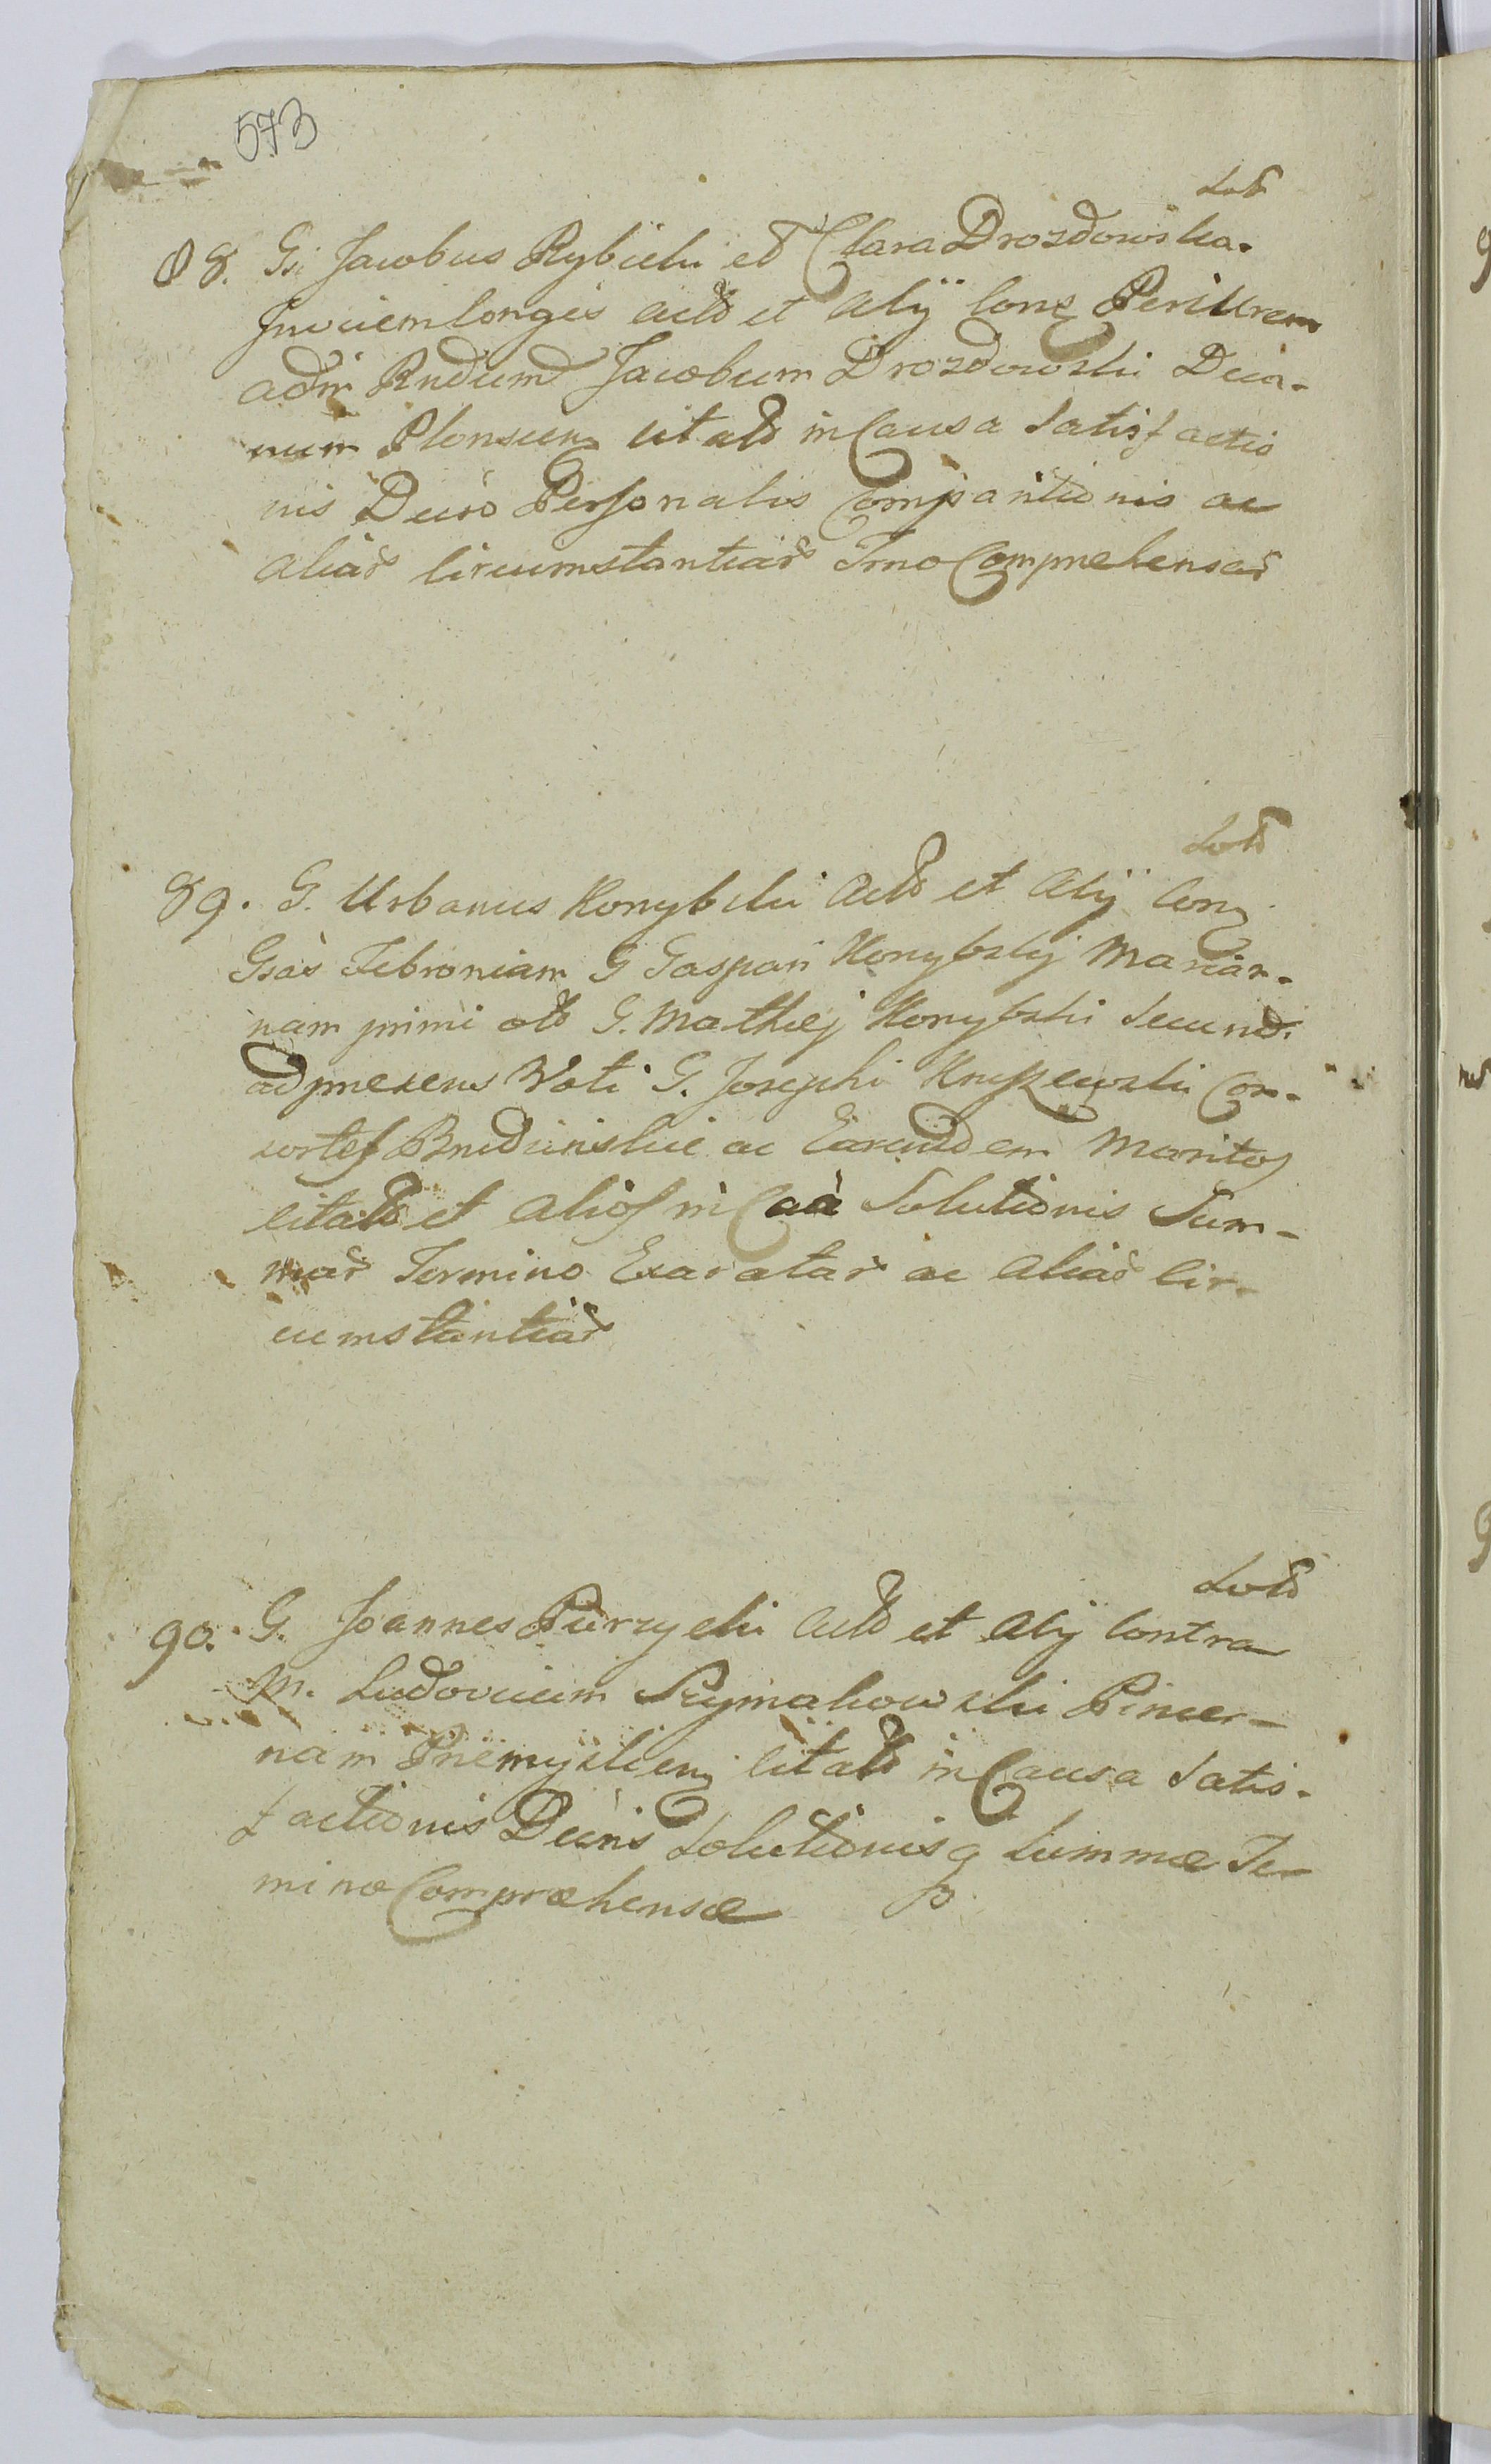 573
Solt
88. Gsi Jacobus Rybicki et Clara Drozdowska
Invicem Conges Actt et Alij Conz Perillrem
adm Rndum Jacobum Drozdowski Deca-
num Plonscen Citatt in Causa Satisfactio
nis Decro Personalis Comparitionis ac
Aliar Circumstantiar Trno Comprehensar
Soltt
89. G. Urbanus Konybski Actt et Alij Con
Gsàs Febroniam G Gaspari Konybskij Marian-
nam primi ott G. Mathiej Konybski Secundi
ad praesens Voti G. Josephi Kryszewski Con-
sortes ac Earundem Maritos
Citatt et Alios in Caà Solutionis Sum-
mar Termino Exaratar ac Aliar Cir-
cumstantiar
Soltt
90. G. Joannes Purzycki Actt et Alij Contra
M. Ludovicum Szymakowski Pincer-
nam Premyslien Citatt in Causa Satis-
factionis Decris Solutionisq Summae Ter
mino Compraehensae